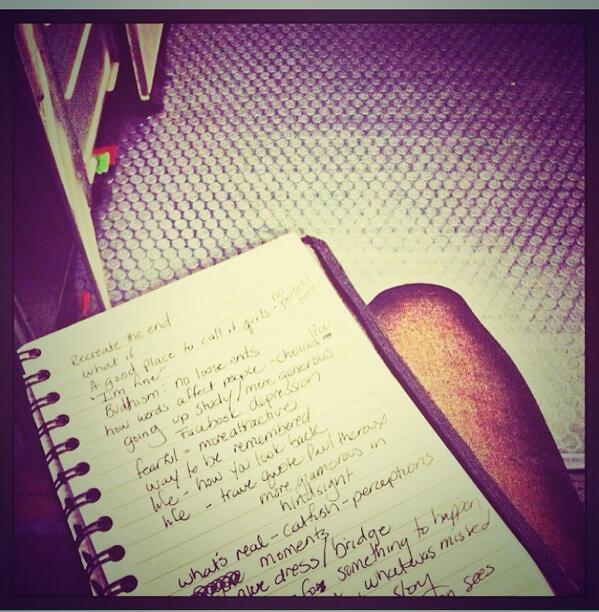 Recreate the end
what if
A good place to call it quits - no perfect time
"I'm fine"
Buddhism: no loose ends
how words affect people - choices
going up study/more generous
Facebook depression
fearful = more attractive
way to be remembered
life - how you look back
life - travel quote Paul Theroux
more glamorous in
hindsight
what's real - catfish - perceptions
moments
dress/bridge
for something to happen
what was missed
story
sees